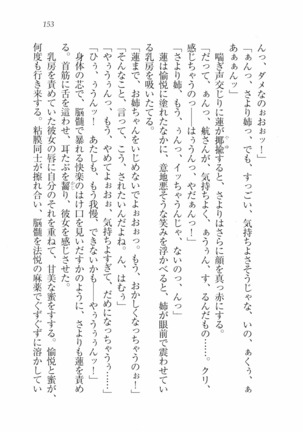 153
んっ、ダメなのぉおぉッ！」
「ぁんっ、さより姉っ、でも、すっごい、気持ちよさそうじゃな、いのっ、あくぅ、ぁ
あぁぁんッ」
喘ぎ声交じりに蓮が揶揄すると、さよりはさらに顔を真っ赤にした。
「だって、ぁんっ、航さんが、気持ちよく、ぁうぅん、す、るんだもの……。クリ、
感じちゃうのっ――はぅうんっ、やだぁんっ！」
「さより姉っ、もう、うんっ、イッちゃうんじゃ、ないのっ、んっ」
蓮は愉悦に塗れたなかに、意地悪そうな笑みを浮かべると、姉が眼前で震わせてい
る乳房を吸いたてる。
「蓮まで、お姉ちゃんをいじめないでよぉおぉっ。もう、おかしくなっちゃうのぉ！」
「そんなこと、言って、こう、されたいんだよね。ん、はむぅ」
「やぅうぅんっ、もう、やめてよぉおぉ、気持ちよすぎて、だめになっちゃうぅ……」
「ひぅ、ぅうんッ！　あたしも、もう我慢、できないかも――やぅうぅぅんッ！」
身体の芯で、脳髄で暴れる快楽のはけ口を見いだすかのように、さよりも蓮を責め
る。首筋に舌を這わせ、耳たぶを齧り、彼女を感じさせた。
乳房を責めていた彼女の唇に自分のそれを重ねて、甘美な蜜をすする。愉悦と蜜が、
何度も行き来する。粘膜同士が擦れ合い、脳髄を法悦の麻薬でぐずぐずに溶かしてい